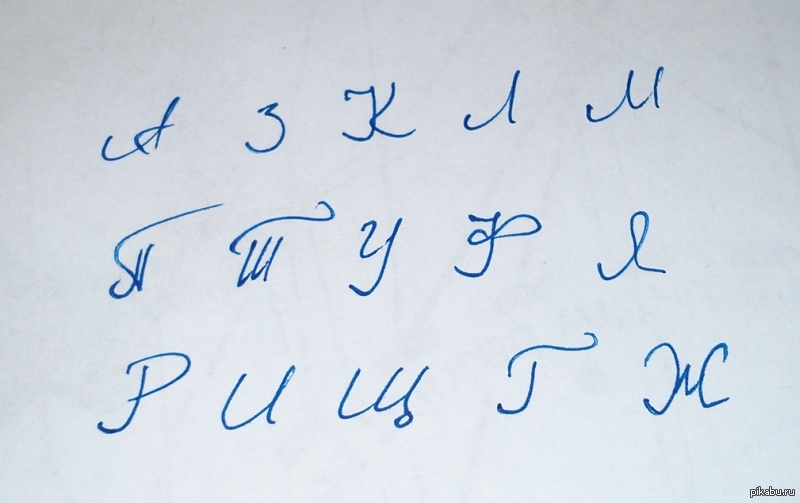 А З К Л М
П Т У Ф Я
Р И Щ Г Ж
pikabu.ru